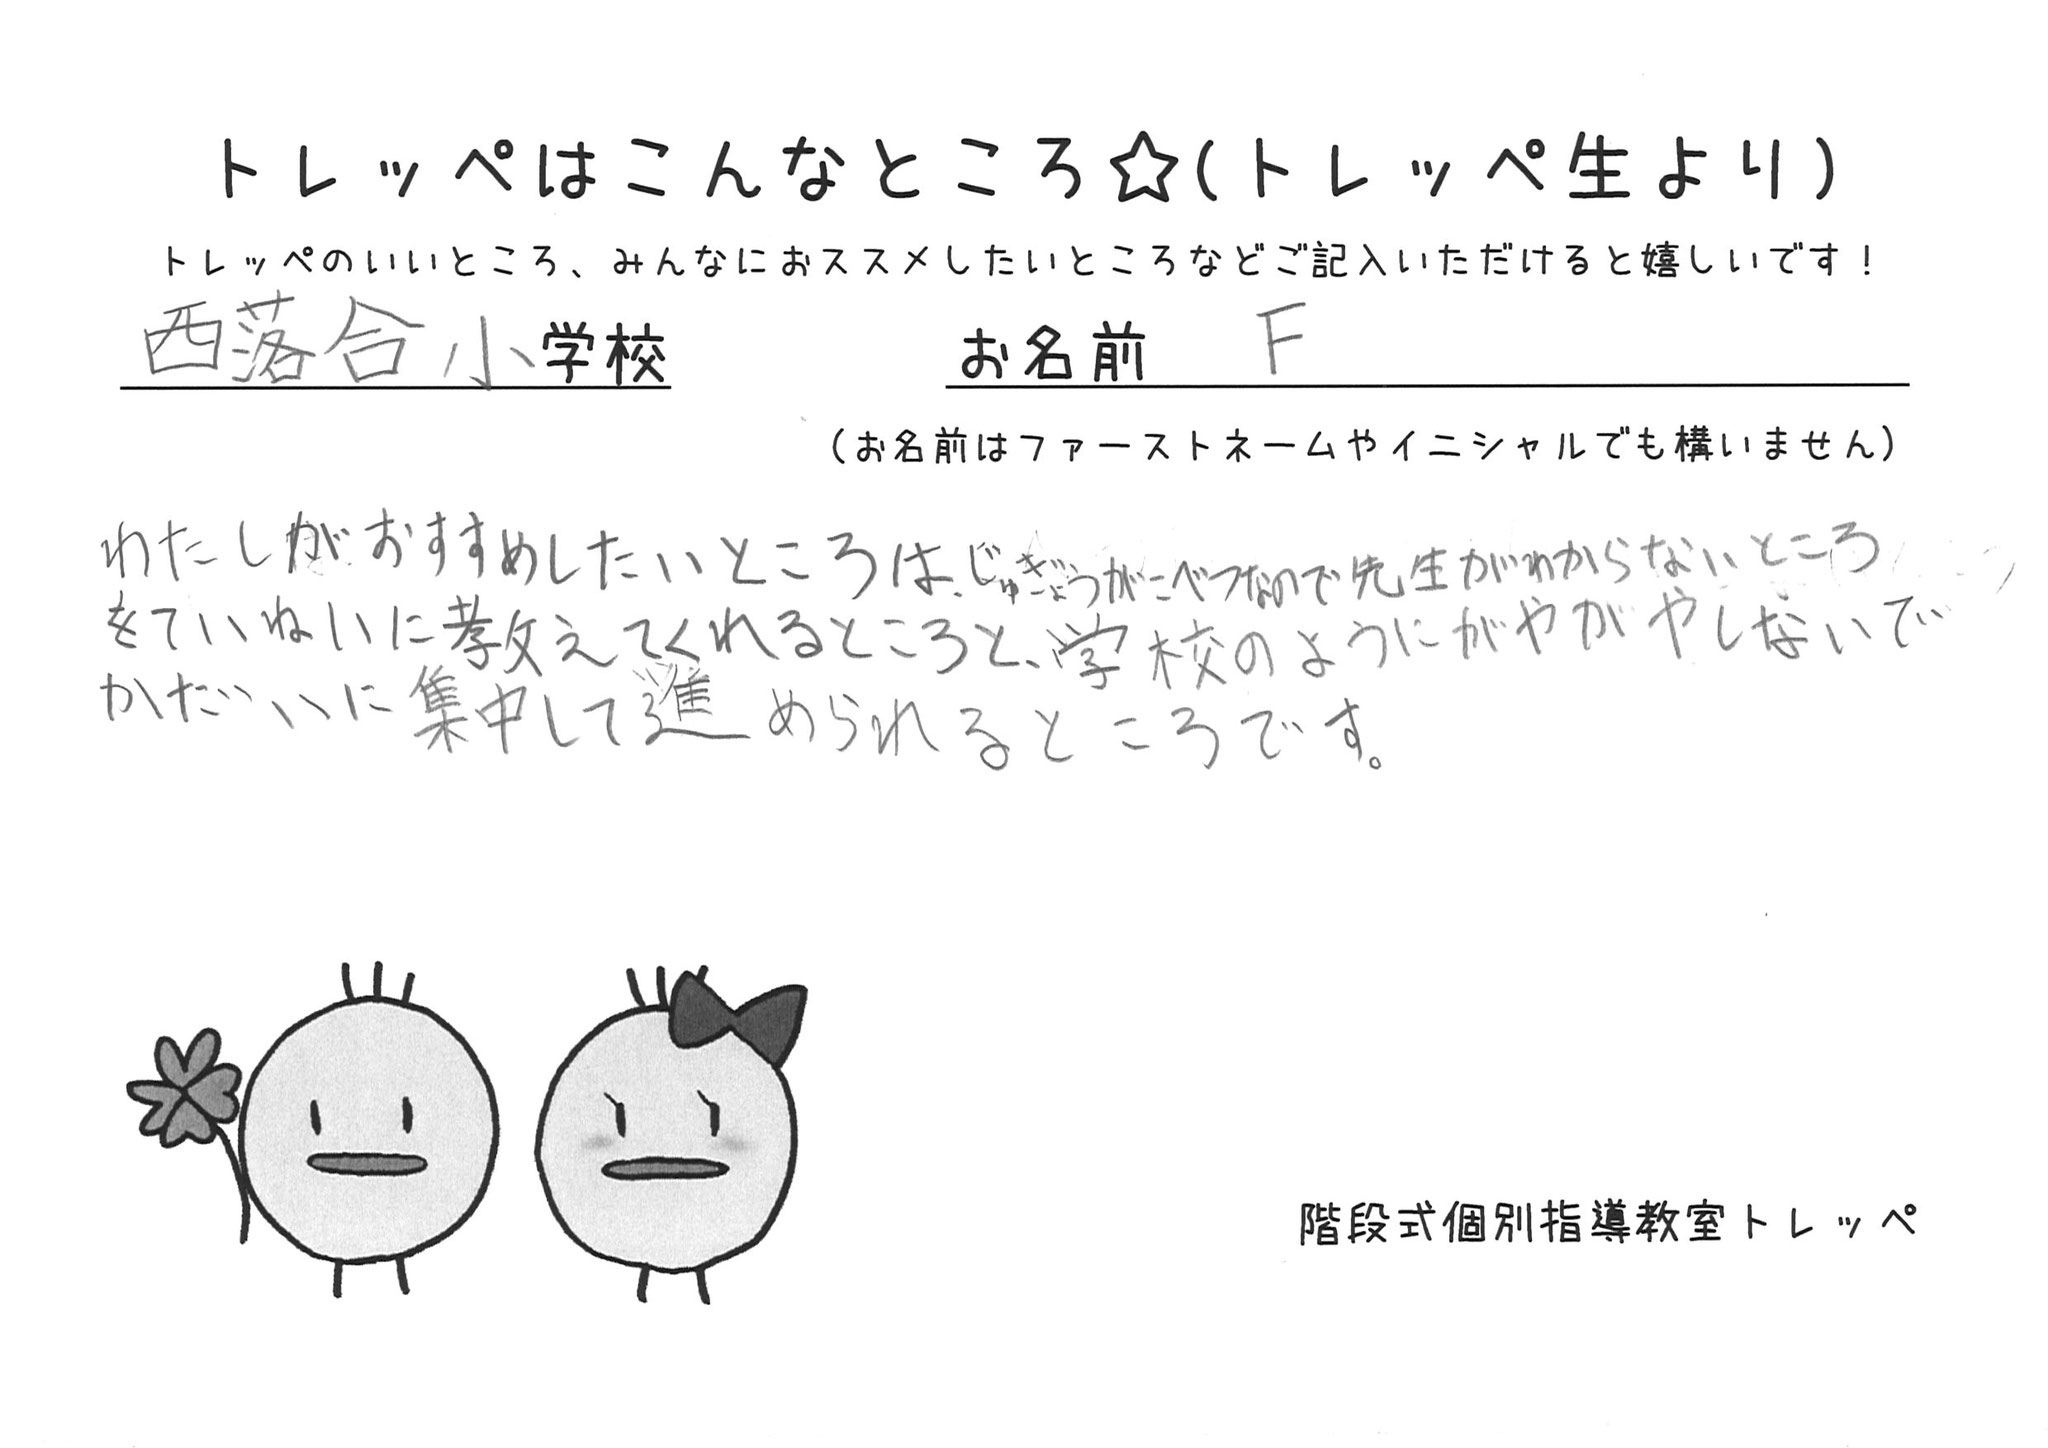 トレッペはこんなところ☆(トレッペ生より)
トレッペのいいところ、みんなにおススメしたいところなどご記入いただけると嬉しいです！
西落合小学校
お名前 F
(お名前はファーストネームやイニシャルでも構いません)
わたしがおすすめしたいところは、じゅぎょうがこべつなので先生がわからないところ
をていねいに教えてくれるところと、学校のようにがやがやしないで
かだいに集中して進められるところです。
階段式個別指導教室トレッペ